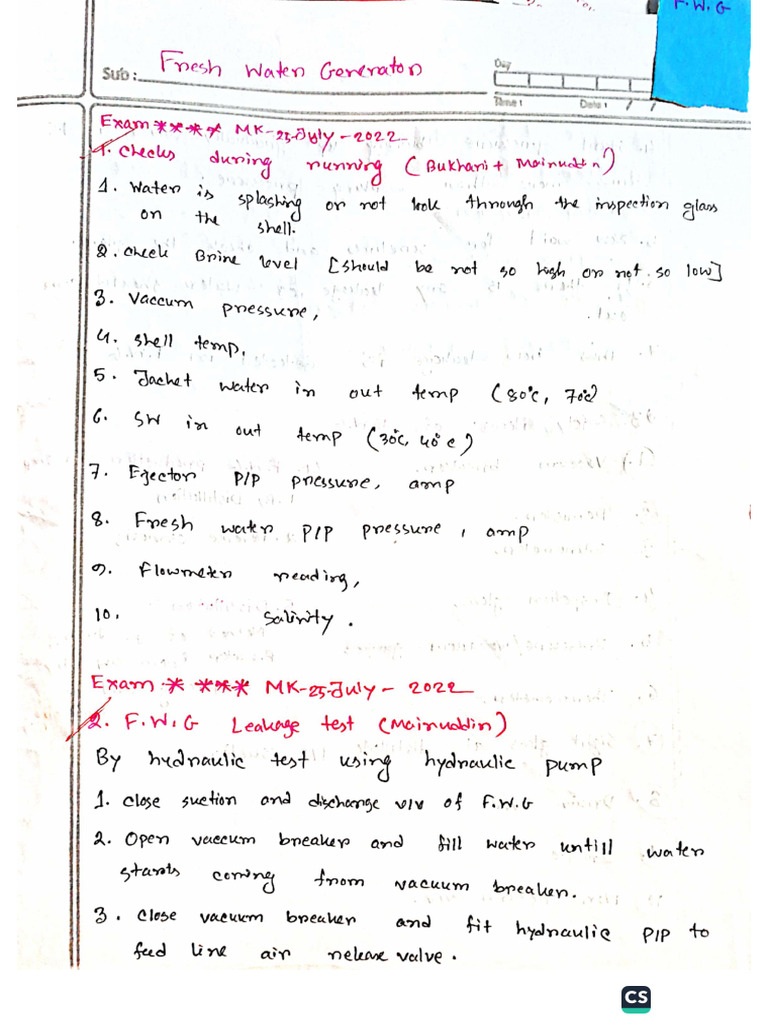 F.W.G
Sub: Fresh Water Generator
Day
Time: Date: / /
Exam **** MK-25-July-2022
1. Checks during running (Bukhari + Mainuddin)
1. Water is splashing or not look through the inspection glass
on the shell.
2. Check Brine level [Should be not so high or not so low]
3. Vaccum pressure,
4. shell temp,
5. Jacket water in out temp (80°C, 70°C)
6. SW in out temp (30°C, 40°C)
7. Ejector P/P pressure, amp
8. Fresh water P/P pressure, amp
9. Flowmeter reading,
10. Salinity.
Exam * *** MK-25-July-2022
2. F.W.G Leakage test (Mainuddin)
By hydraulic test using hydraulic pump
1. Close suction and discharge v/v of F.W.G
2. Open vaccum breaker and fill water untill water
starts coming from vacuum breaker.
3. Close vacuum breaker and fit hydraulic P/P to
feed line air release valve.
CS